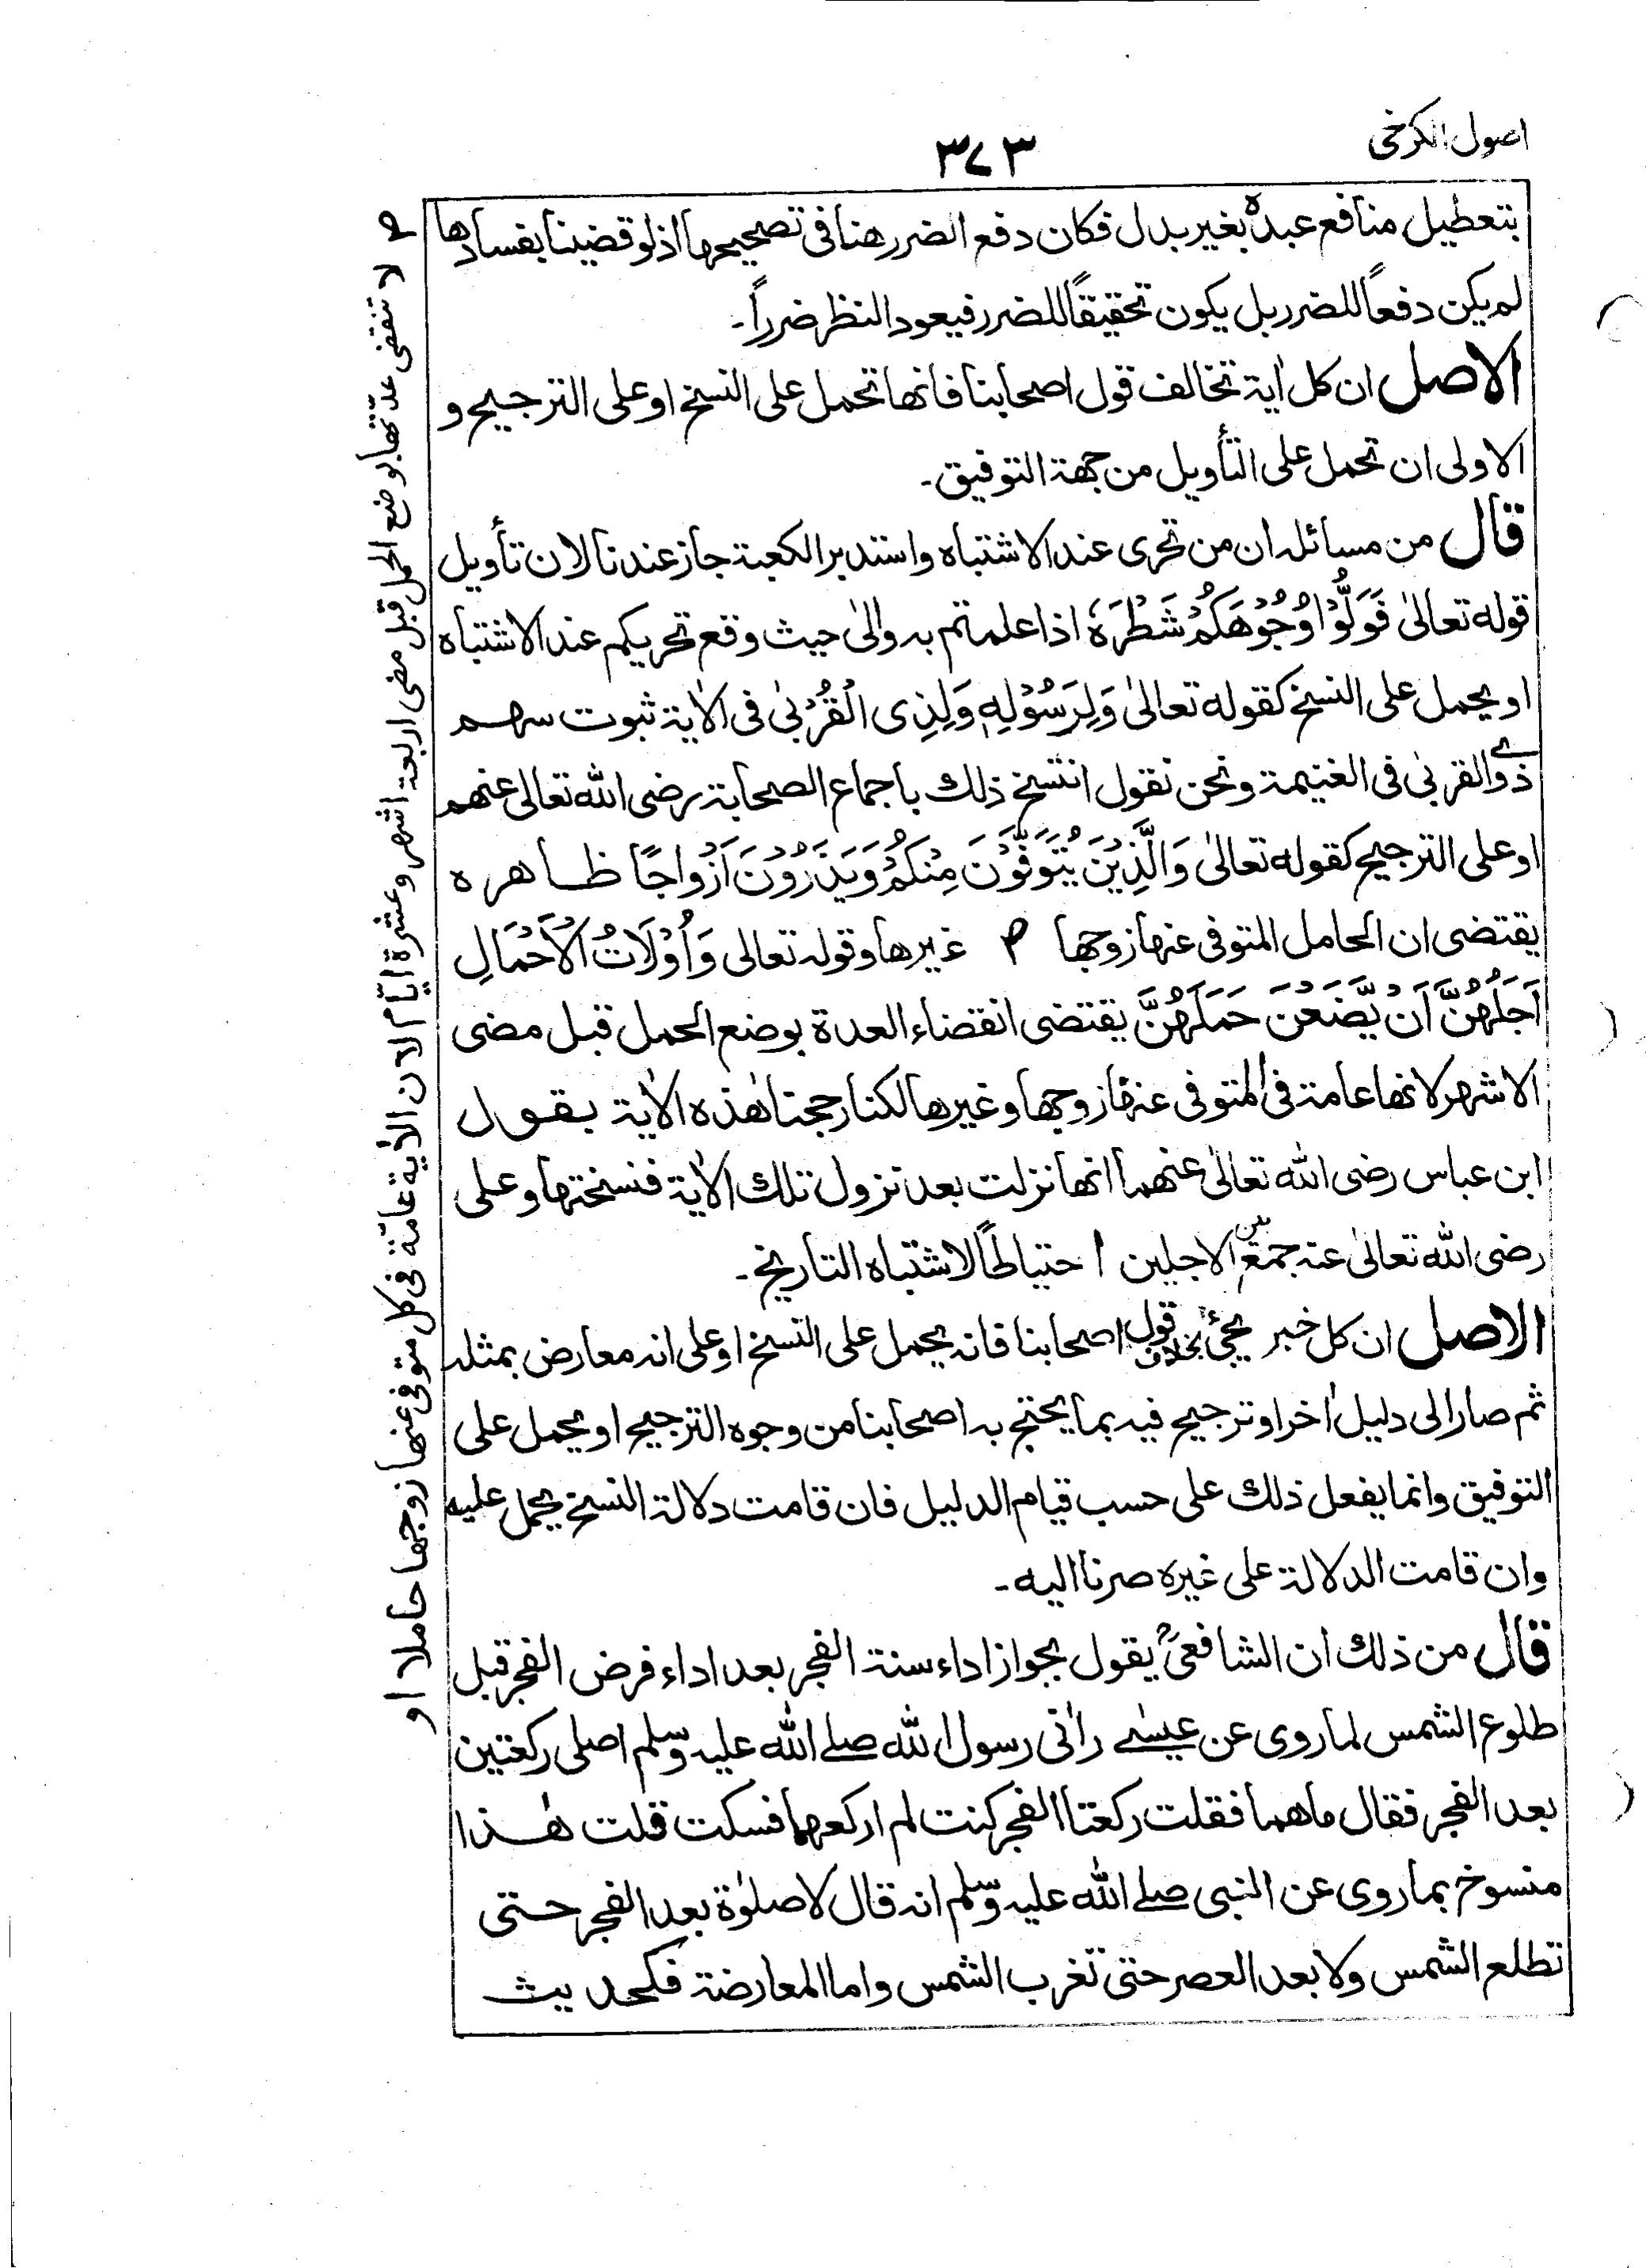 اصول الكرخى
٣٧٣
بتعطيل منافع عبده بغير بدل فكان دفع الضرر هنا فى تصحيحها اذ لو قضينا بفسادها
لم يكن دفعاً للضرر بل يكون تحقيقاً للضرر فيعود النظر ضرراً۔
الاصل ان كل اٰية تخالف قول اصحابنا فانها تحمل على النسخ او على الترجيح و
الاولى ان تحمل على التأويل من جهة التوفيق۔
قال من مسائله ان من تحرى عند الاشتباه واستدبر الكعبة جاز عندنا لان تأويل
قوله تعالىٰ فَوَلُّوْا وُجُوْهَكُمْ شَطْرَهٗ اذا علمتم به والىٰ حيث وقع تحريكم عند الاشتباه
او يحمل على النسخ كقوله تعالىٰ وَلِرَسُوْلِهٖ وَلِذِى الْقُرْبٰى فى الاٰية ثبوت سهم
ذوے القربٰى فى الغنيمة ونحن نقول انتسخ ذلك باجماع الصحابة رضى الله تعالى عنهم
او على الترجيح كقوله تعالىٰ وَالَّذِيْنَ يُتَوَفَّوْنَ مِنْكُمْ وَيَذَرُوْنَ اَزْوَاجًا ظاهره
يقتضى ان الحامل المتوفى عنها زوجها ۾ غيرها وقوله تعالى وَاُوْلَاتُ الْاَحْمَالِ
اَجَلُهُنَّ اَنْ يَّضَعْنَ حَمْلَهُنَّ يقتضى انقضاء العدة بوضع الحمل قبل مضى
الاشهر لانها عامة فى المتوفى عنها زوجها وغيرها لكنا رجحنا هٰذه الاٰية بقول
ابن عباس رضى الله تعالىٰ عنهما انها نزلت بعد نزول تلك الاٰية فنسختها وعلى
رضى الله تعالىٰ عنه جمع بين الاجلين احتياطاً لاشتباه التاريخ۔
الاصل ان كل خبر يجئ بخلاف قول اصحابنا فانه يحمل على النسخ او على انه معارض بمثله
ثم صار الى دليل اٰخر او ترجيح فيه بما يحتج به اصحابنا من وجوه الترجيح او يحمل على
التوفيق وانما يفعل ذلك على حسب قيام الدليل فان قامت دلالة النسخ يحمل عليه
وان قامت الدلالة على غيره صرنا اليه۔
قال من ذلك ان الشافعىؒ يقول بجواز اداء سنة الفجر بعد اداء فرض الفجر قبل
طلوع الشمس لما روى عن عيسٰے راٰنى رسول الله صلے الله عليه وسلم اصلى ركعتين
بعد الفجر فقال ما هما فقلت ركعتا الفجر كنت لم اركعهما فسكت قلت هٰذا
منسوخ بما روى عن النبى صلے الله عليه وسلم انه قال لا صلوٰة بعد الفجر حتى
تطلع الشمس ولا بعد العصر حتى تغرب الشمس واما المعارضة فكحديث
۾ لا تنقضى عدّتها بوضع الحمل قبل مضى اربعة اشهر وعشرة ايّام لان الاٰية عامّة فى كل متوفى عنها زوجها حاملا او